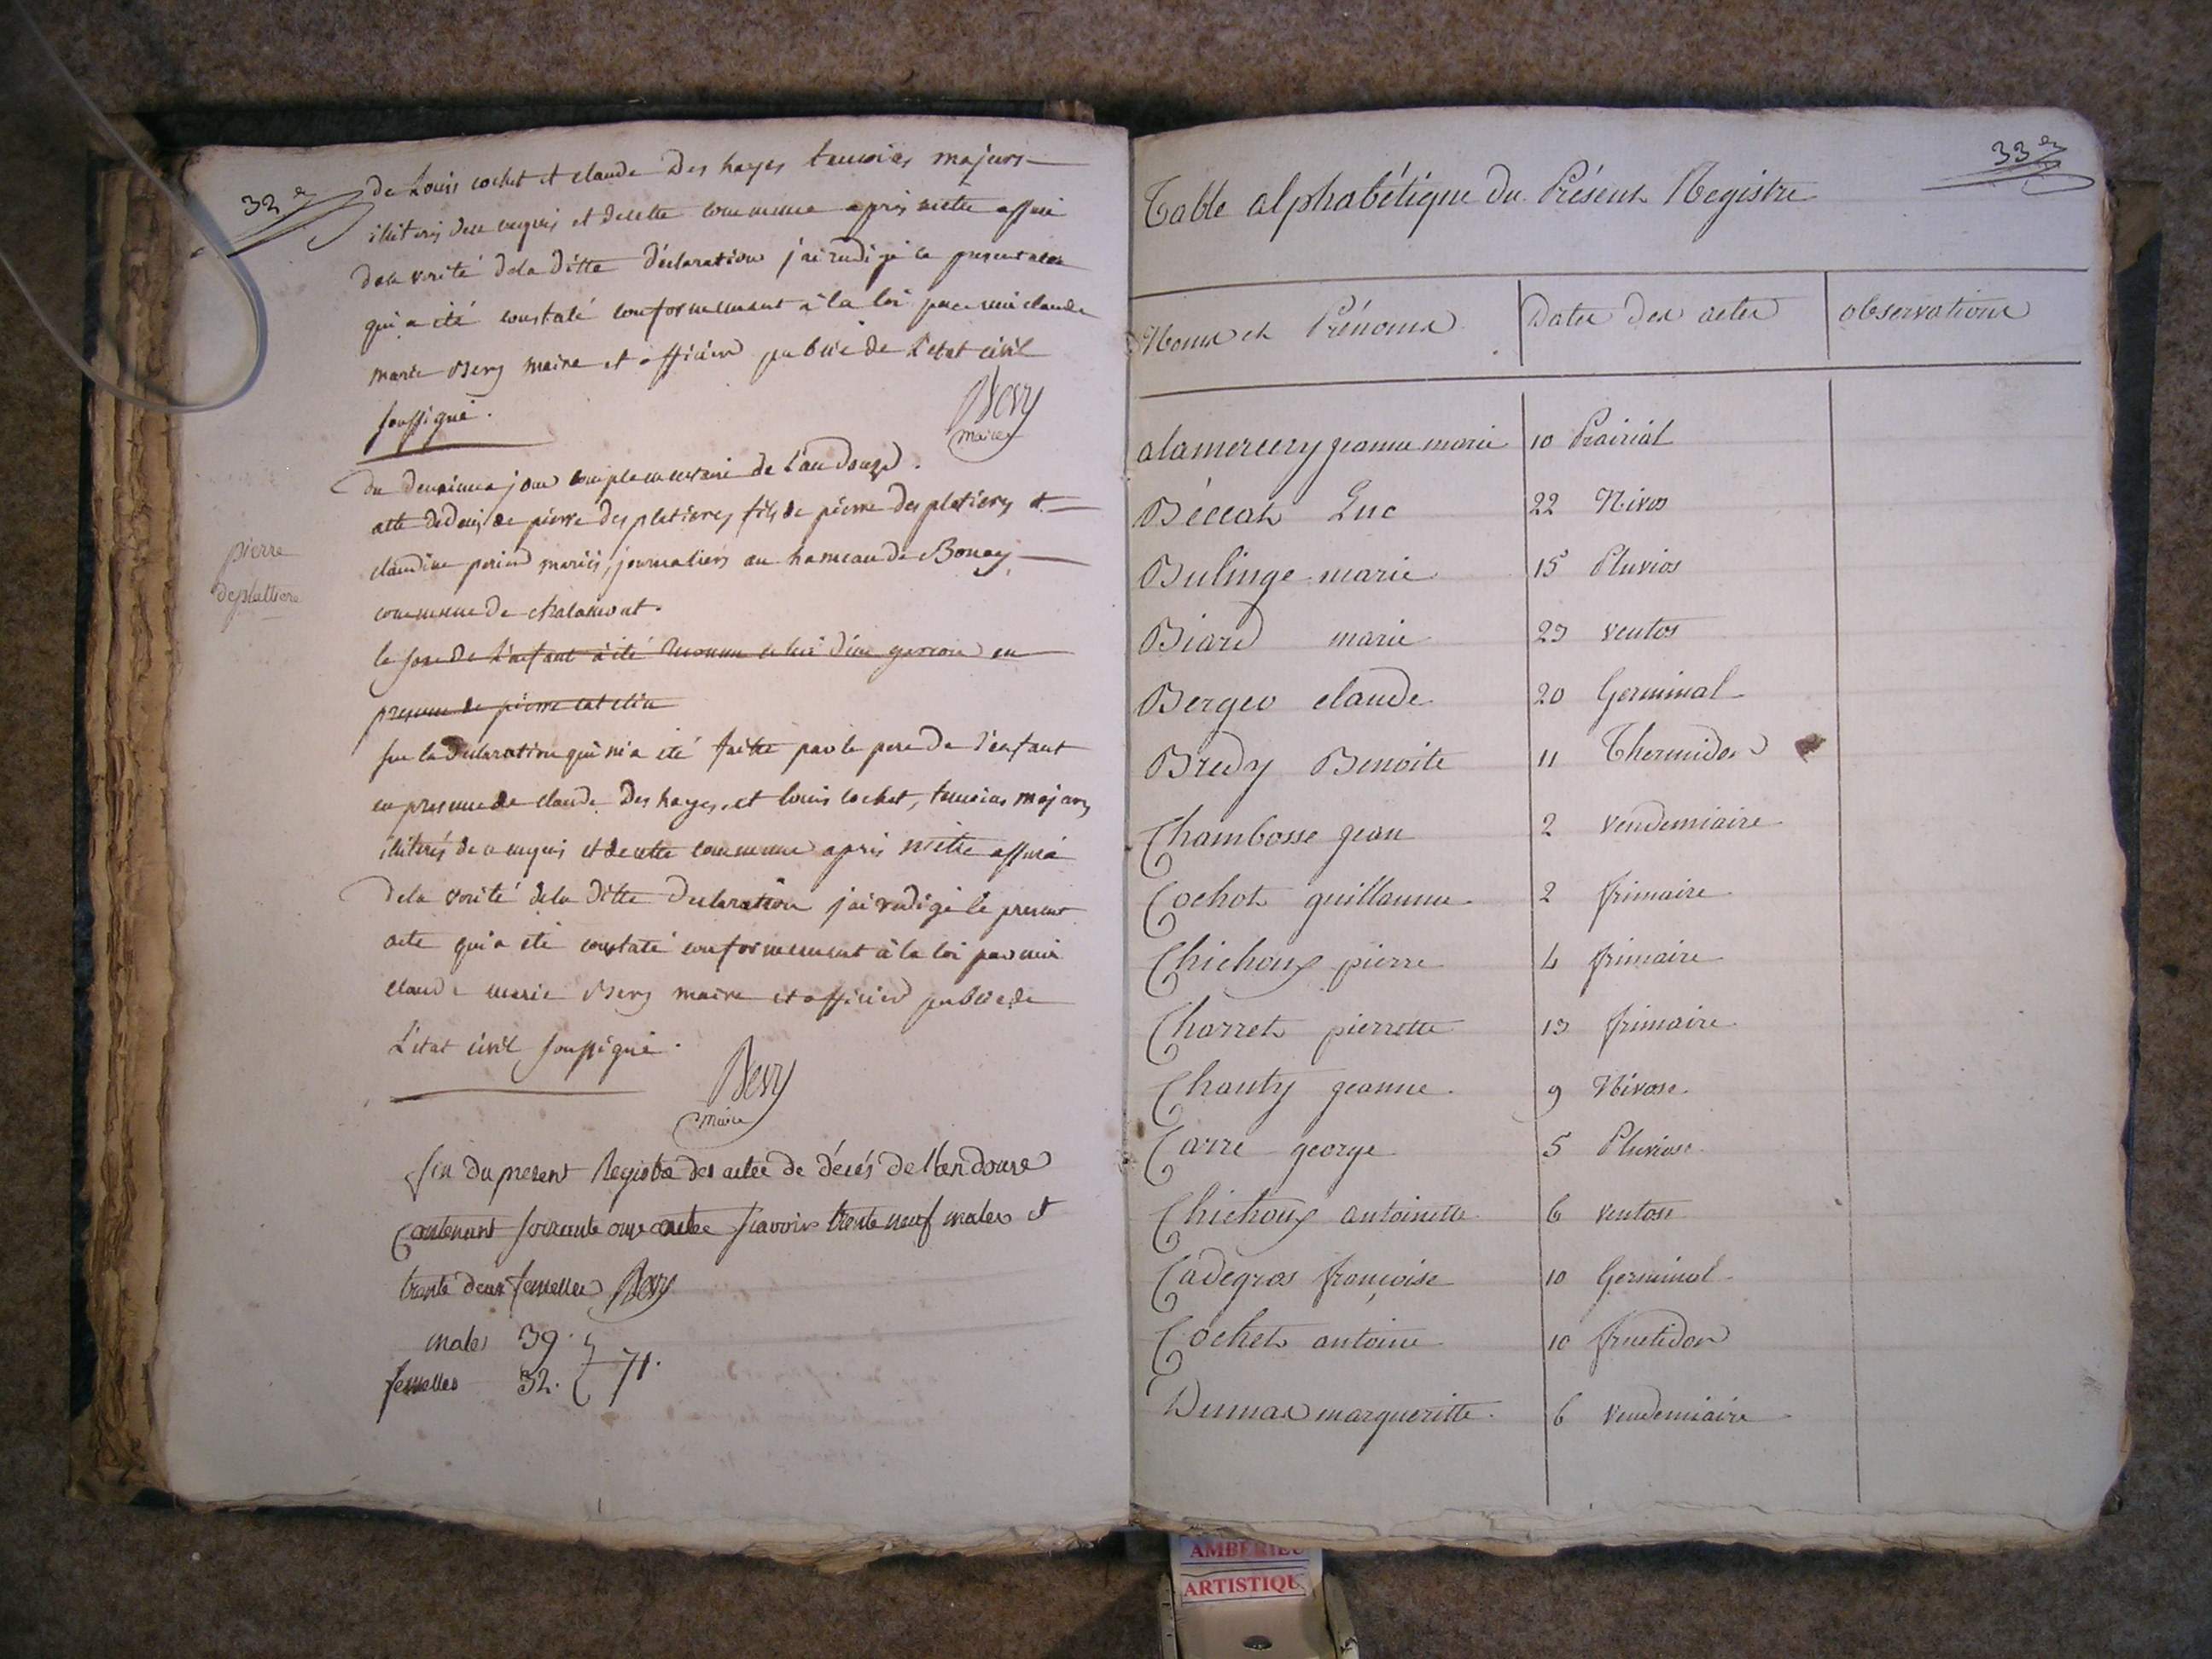 32e
de Louis cochet et claude Des hayes temoins majeurs
illiteres de ce requis et de cette commune apres mettre assuré
de la verité de la ditte déclaration j'ai rédigé le present acte
qui a été constaté conformement à la loi par moi claude
marie Bery maire et officier public de L'etat civil
soussigné.
Bery
maire
du deuxieme jour complementaire de L'an douze.
acte de decès de pierre des platieres fils de pierre des platieres et
claudine mariés, journaliers au hameau de Bonay
commune de chalamont.
pierre
desplattiere
le sexe de L'enfant à été reconnu celui d'un garcon en
presence de pierre catelin
sur la Declaration qui m'a été faitte par le pere de l'enfant
en presence de claude Des hayes, et louis cochet, temoins majeurs
illiterés de ce requis et de cette commune apris mettre assuré
de la verité de la ditte Declaration j'ai redigé le present
acte qui a été constaté conformement à la loi par moi
claude marie Bery maire et officier public de
L'etat civil soussigné.
Bery
maire
fin du present Registre des actes de décés de l'an douze
Contenant soixante onze actes scavoir trente neuf males et
trente deux femelles Bery
males 39.
femelles 32. 71.
33e
Table alphabétique du Présent Registre
Noms et Prénoms Dates des actes observations
alamercery jeanne marie 10 Prairial
Béccat Luc 22 Nivos
Bulinge marie 15 Pluvios
Biard marie 23 ventos
Berger claude 20 Germinal
Bredy Benoite 11 Thermidor
Chambosse jean 2 vendemiaire
Cochet guillaume 2 frimaire
Chichoux pierre 4 frimaire
Charret pierrette 13 frimaire
Chanty jeanne 9 Nivose
Carre george 5 Pluviose
Chichoux antoinette 6 ventose
Cadegros françoise 10 Germinal
Cochet antoine 10 fructidor
Dumas margueritte 6 vendemiaire
AMBERIEU
ARTISTIQU